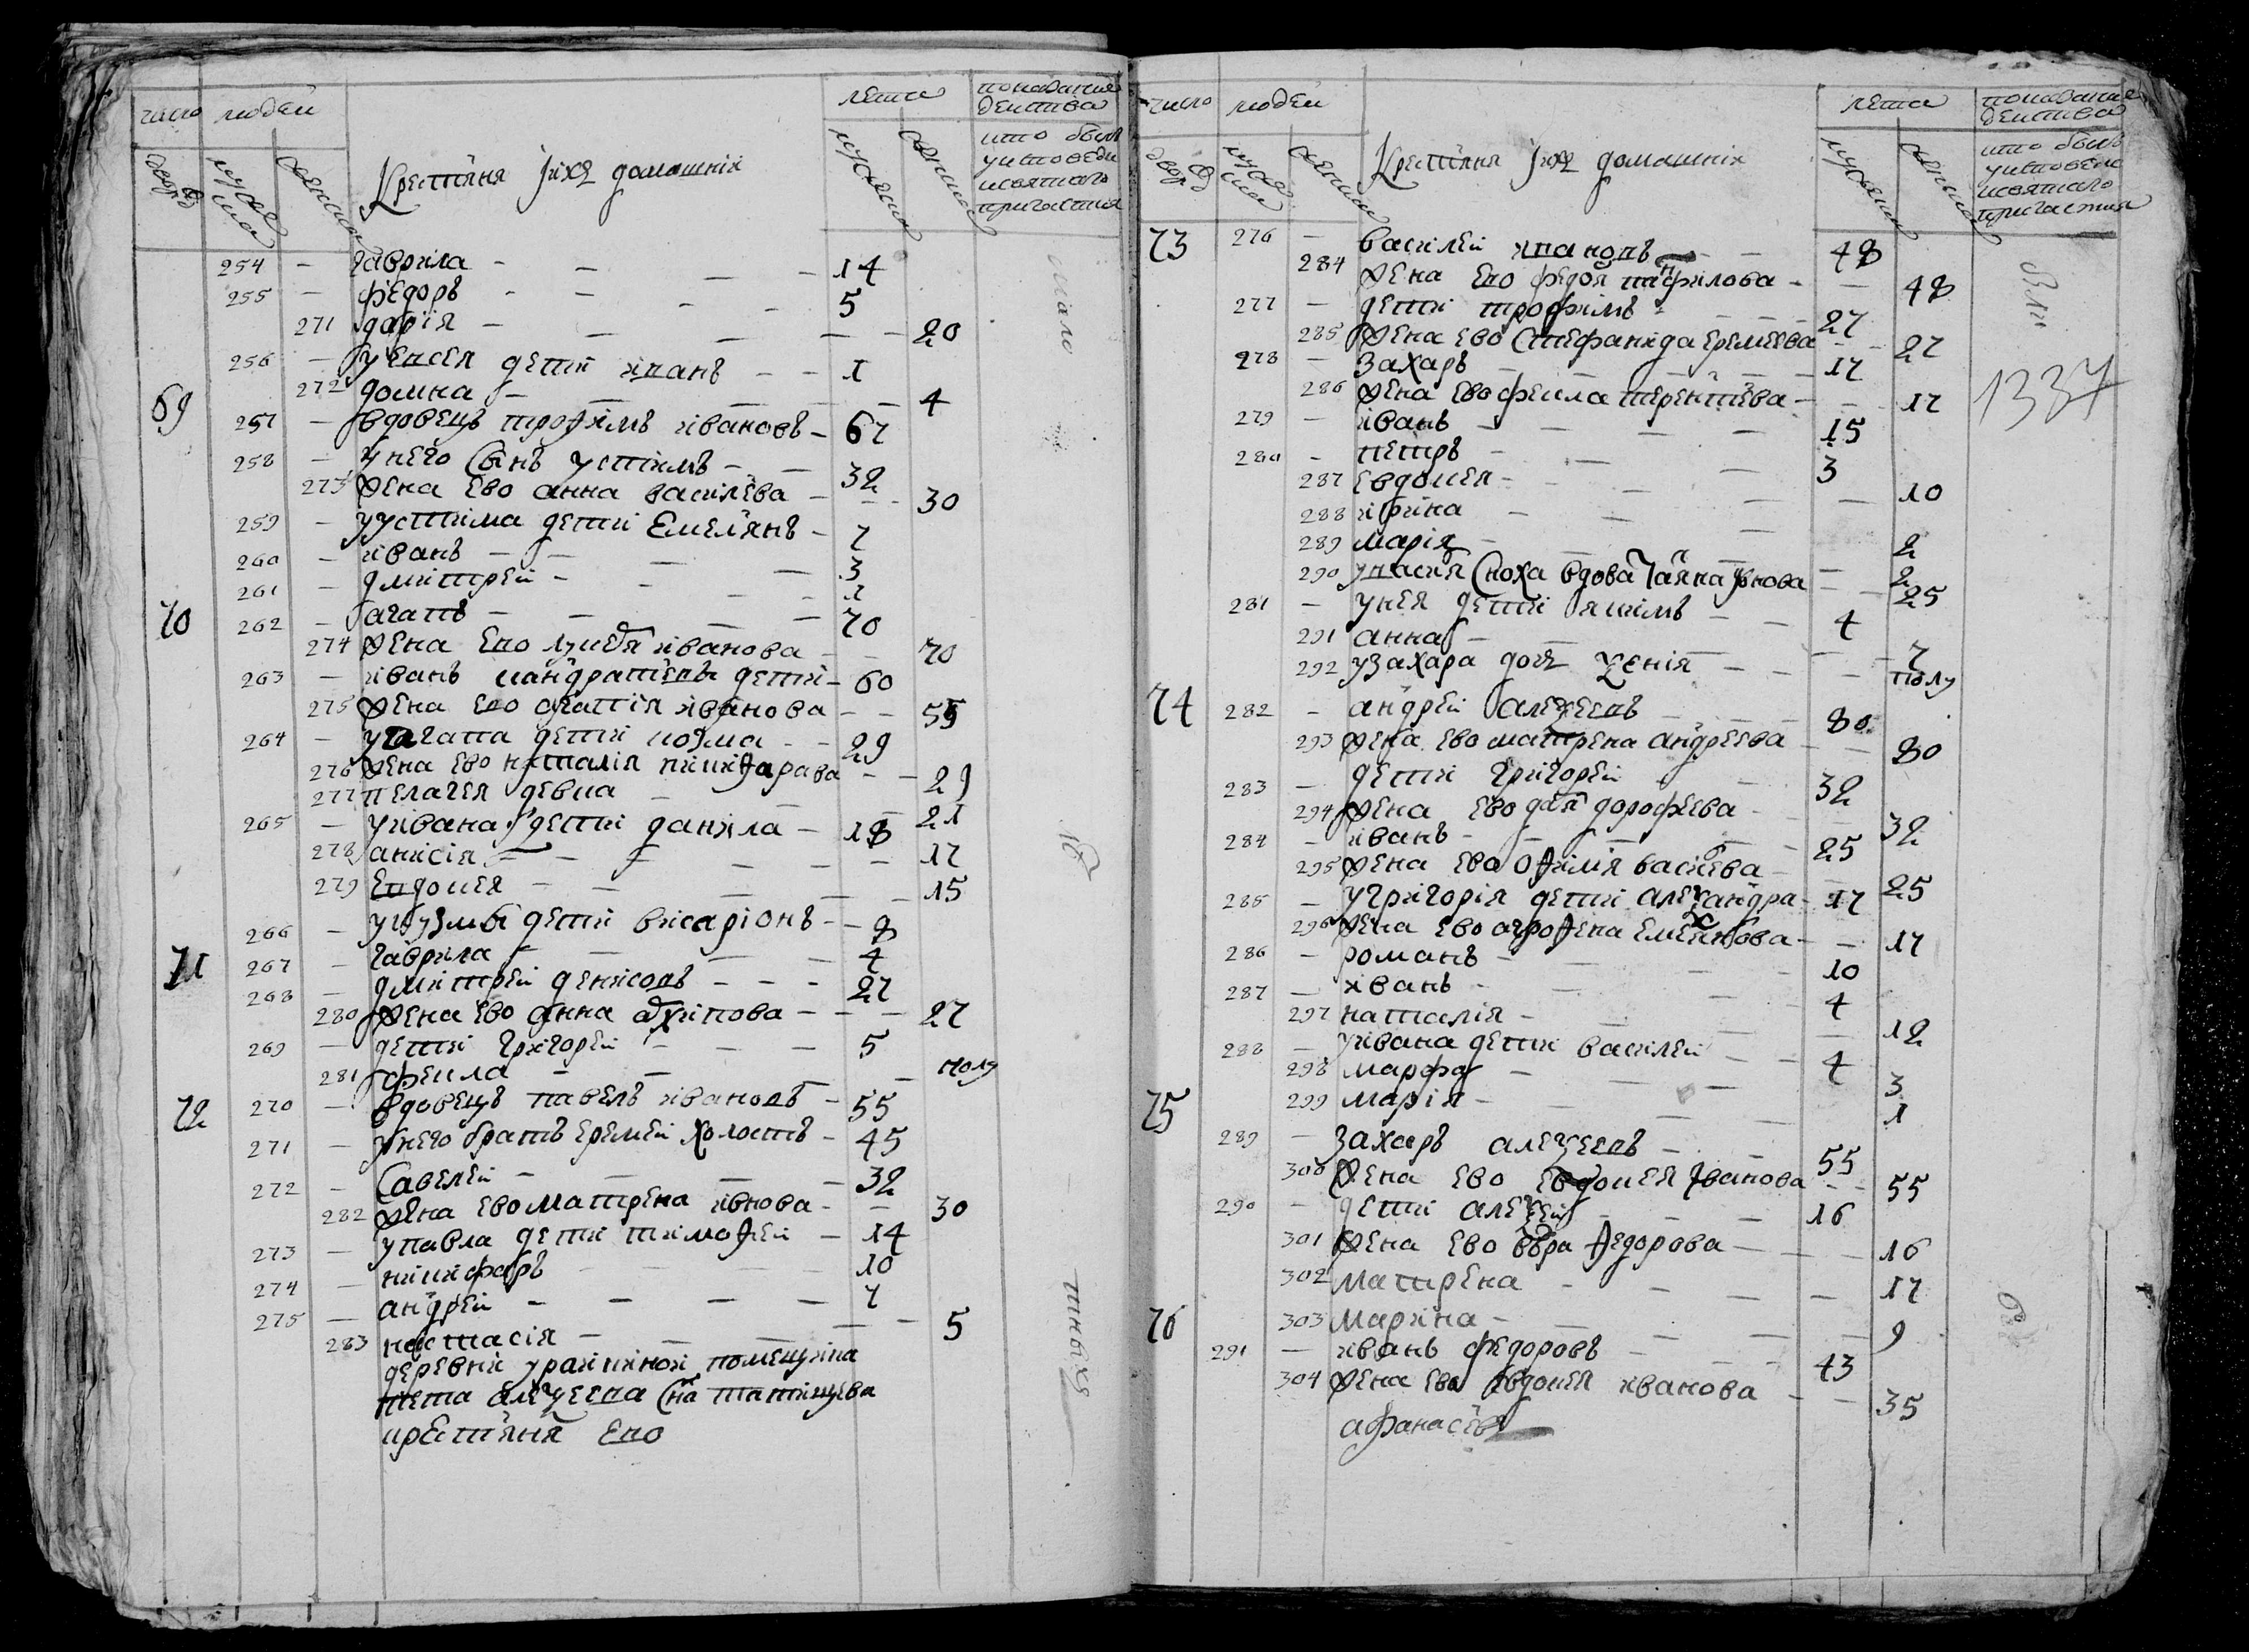 число людей
лета
показание действа
дворовъ
мужеска
женска
Крестьяня ихъ домашнии
мужеска
женска
кто былъ
у исповеди
и святаго
причастия
254 — гаврила — — — — 14
255 — федоръ — — — — 5
271 дария — — — — 20
256 — у евсея дети иванъ — — 1
272 домна — — — — 4
69 257 — вдовецъ трофимъ ивановъ — 67
258 — у него сынъ устимъ — — 32
273 жена ево анна василева — — 30
259 — у устима дети емелянъ — 7
260 — иванъ — — — 3
261 — дмитрей — — — 1
70 262 — агапъ — — — 70
274 жена ево иванова — — 70
263 — иванъ кандратевъ дети — 60
275 жена ево агапия иванова — — 55
264 — у агапа дети козма — — 29
276 жена ево наталия никифарава — — 29
277 пелагея девка — — — 21
265 — у ивана дети данила — 18
278 анисия — — — — 17
279 евдокея — — — — 15
266 — у кузмы дети висарионъ — — 8
267 — гаврила — — — 4
71 268 — дмитрей денисовъ — — — 27
280 жена ево анна архипова — — — 27
269 — дети григорей — — — 5
281 фекла — — — полу
72 270 — вдовецъ павелъ ивановъ — 55
271 — у него братъ еремей холостъ — 45
272 — савелей — — — 32
282 жена ево матрена ивнова — — 30
273 — у павла дети тимофей — 14
274 — никифаръ — — — 10
275 — андрей — — — — 7
283 настасия — — — — 5
деревни помещика
петра алексеева сна татищева
крестьяня ево
число людей
лета
показание действа
дворовъ
мужеска
женска
Крестьяня ихъ домашнии
мужеска
женска
кто былъ
у исповеди
и святаго
причастия
1337
73 276 — василей ивановъ — — 48
284 жена ево федоя панфилова — — 48
277 — дети трофимъ — — — 27
285 жена ево стефанида еремеева — — 27
278 — захаръ — — — — 17
286 жена ево фекла терентева — — 17
279 — иванъ — — — — 15
280 — петръ — — — 3
287 евдокея — — — — 10
288 ирина — — — 2
289 мария — — — — 2
290 сноха вдова — — 25
281 — у нея дети якимъ — — 4
291 анна — — — — 7
292 у захара дочь ксения — — — полу
74 282 — андрей алексеевъ — — — 80
293 жена ево матрена андреева — — 80
283 — дети григорей — — 32
294 жена ево дарья дорофеева — — 32
284 — иванъ — — — — 25
295 жена ево офимия васиева — — 25
285 — у григория дети александра — 17
296 жена ево агрофена — — 17
286 — романъ — — — — 10
287 — иванъ — — — 4
297 наталия — — — — 12
288 — у ивана дети василей — — 4
298 марфа — — — — 3
299 мария — — — — 1
75 289 — захаръ алексеевъ — — 55
300 жена ево евдокея иванова — — 55
290 — дети алексей — — — 16
301 жена ево вера федорова — — — 16
302 матрена — — — — 17
303 марина — — — — 9
76 291 — иванъ федоровъ — — — 43
304 жена ева евдокея иванова — — 35
афанасевъ